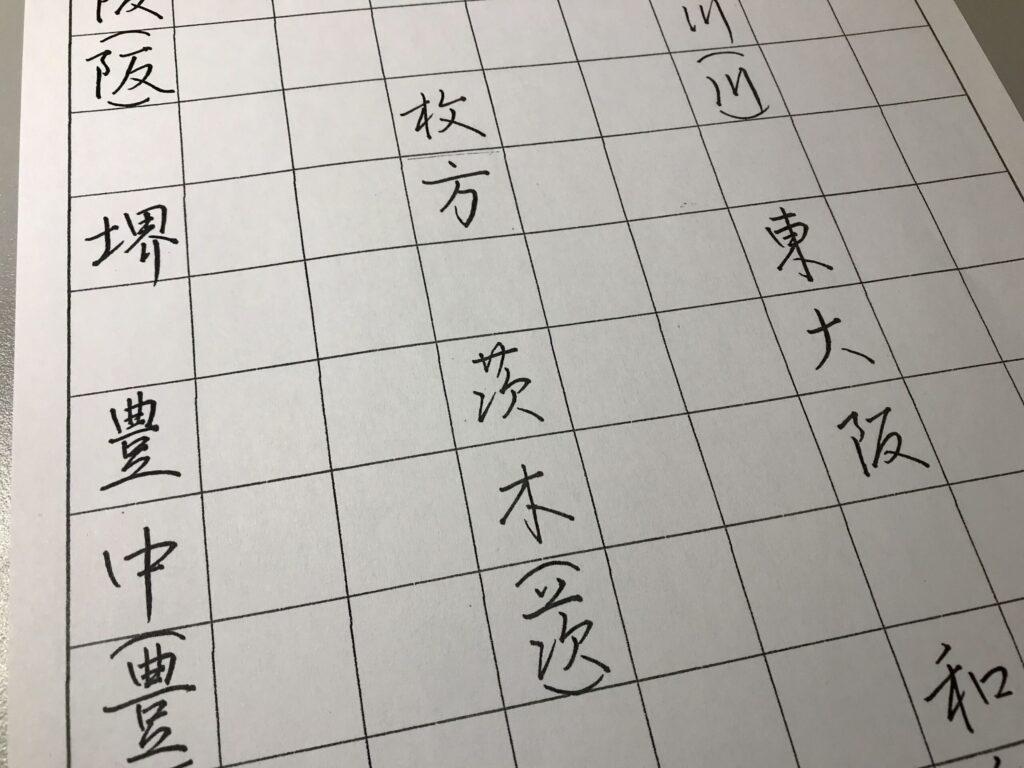 阪(阪)
堺
豊中(豊
枚方
茨木(茨)
川(川)
東大阪
和